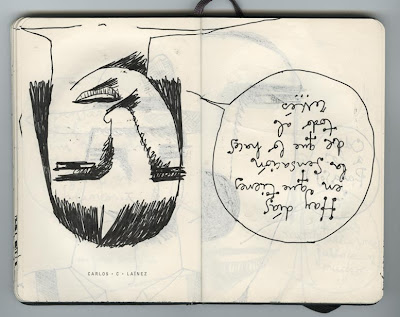 Hay días
en que tienes
la sensación
de que lo haces
todo al
revés
CARLOS · C · LAÍNEZ